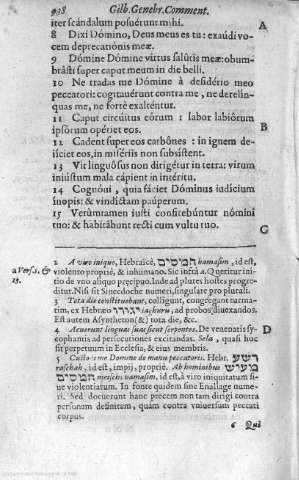 998 Gilb. Genebr. Comment.
iter scándalum posuérunt mihi.
A
8 Dixi Dómino, Deus meus es tu: exaudi vo-
cem deprecationis meæ.
9 Dómine Dómine virtus salútis meæ: obum-
brásti super caput meum in die belli.
10 Ne tradas me Dómine à desidério meo
peccatóri: cogitauérunt contra me, ne derelin-
quas me, ne fortè exalténtur.
11 Caput circúitus eórum: labor labiórum
B
ipsórum opériet eos.
12 Cadent super eos carbónes: in ignem de-
iícies eos, in misériis non subsístent.
13 Vir linguósus non dirigétur in terra: virum
iniústum mala cápient in intéritu.
14 Cognóui, quia fáciet Dóminus iudícium
ínopis: & vindíctam páuperum.
15 Verúmtamen iusti confitebúntur nómini
tuo: & habitábunt recti cum vultu tuo.
C
2 A viro iniquo, Hebraicè, חמסים hamasim, id est,
a Vers. 5. &
violento propriè, & inhumano. Sic infrà a. Queritur initi-
13.
tio de vno aliquo præcipuo. Inde ad plures hostes progre-
ditur. Nisi sit Sinecdoche numeri, singulare pro plurali.
3 Tota die constituebant, colligunt, congregant turma-
tim, ex Hebræo יגורו iaghuru, ad probos diuexandos.
Est autem Asyntheton (&) tota die, &c.
4 Acuerunt linguas suas sicut serpentes. De venaticis sy-
D
cophantis ad persecutiones excitandas. Sela, quasi hoc
sit perpetuum in Ecclesia, & eius membris.
5 Custodi me Domine de manu peccatoris. Hebr. רשע
raschah, id est, impij, propriè. Ab hominibus מאיש
חמסים meischs hamasim, id est, à viro iniquitatum si-
ue violentiarum. In fonte quidem sine Enallage nume-
ri. Sed docuerunt hanc precem non tam dirigi contra
personam definitam, quàm contra vniuersum peccati
corpus.
6 Qui